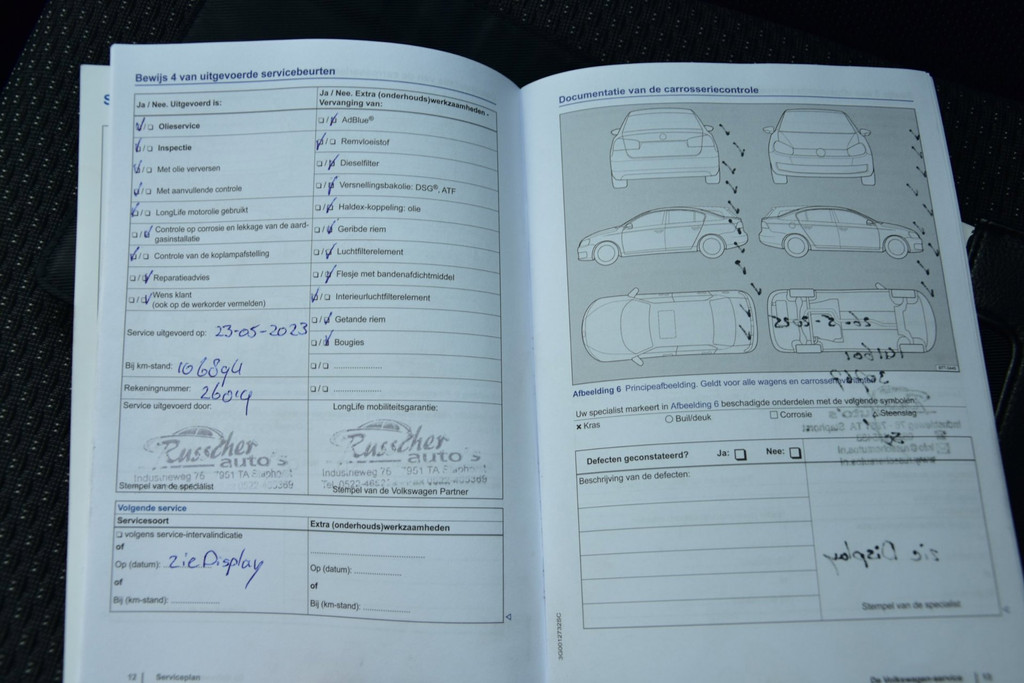 Bewijs 4 van uitgevoerde servicebeurten
Ja / Nee. Uitgevoerd is:
Olieservice
Inspectie
Met olie verversen
Met aanvullende controle
LongLife motorolie gebruikt
Controle op corrosie en lekkage van de aard-
gasinstallatie
Controle van de koplampafstelling
Reparatieadvies
Wens klant
(ook op de werkorder vermelden)
Service uitgevoerd op: 23-05-2023
Bij km-stand: 106894
Rekeningnummer: 26019
Service uitgevoerd door:
Russcher
auto's
Industrieweg 76 7951 TA
Stempel van de specialist
Ja / Nee. Extra (onderhouds)werkzaamheden -
Vervanging van:
AdBlue®
Remvloeistof
Dieselfilter
Versnellingsbakolie: DSG®, ATF
Haldex-koppeling: olie
Geribde riem
Luchtfilterelement
Flesje met bandenafdichtmiddel
Interieurluchtfilterelement
Getande riem
Bougies
LongLife mobiliteitsgarantie:
Russcher
auto's
Industrieweg 76 7951 TA
Stempel van de Volkswagen Partner
Volgende service
Servicesoort
volgens service-intervalindicatie
of
Op (datum): zie Display
of
Bij (km-stand):
Extra (onderhouds)werkzaamheden
Op (datum):
of
Bij (km-stand):
12 Serviceplan
Documentatie van de carrosseriecontrole
Afbeelding 6 Principeafbeelding. Geldt voor alle wagens en
Uw specialist markeert in Afbeelding 6 beschadigde onderdelen met de volgende symbolen:
× Kras
Buil/deuk
Corrosie
Steenslag
Defecten geconstateerd? Ja: Nee:
Beschrijving van de defecten:
Stempel van de specialist
De Volkswagen-service